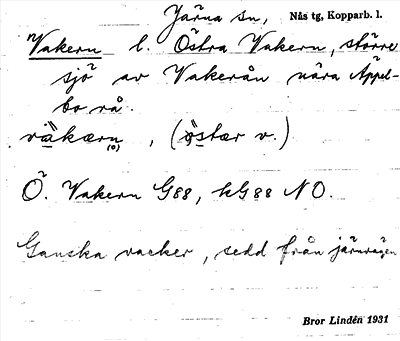 Järna sn, Nås tg, Kopparb. l.
Vakern l. Östra Vakern, större
sjö av Vakerån nära Äppel-
bo rå.
våkærn, (östær v.)
(o)
Ö. Vakern G88, hG88 NO.
Ganska vacker, sedd från järnvägen
Bror Lindén 1931